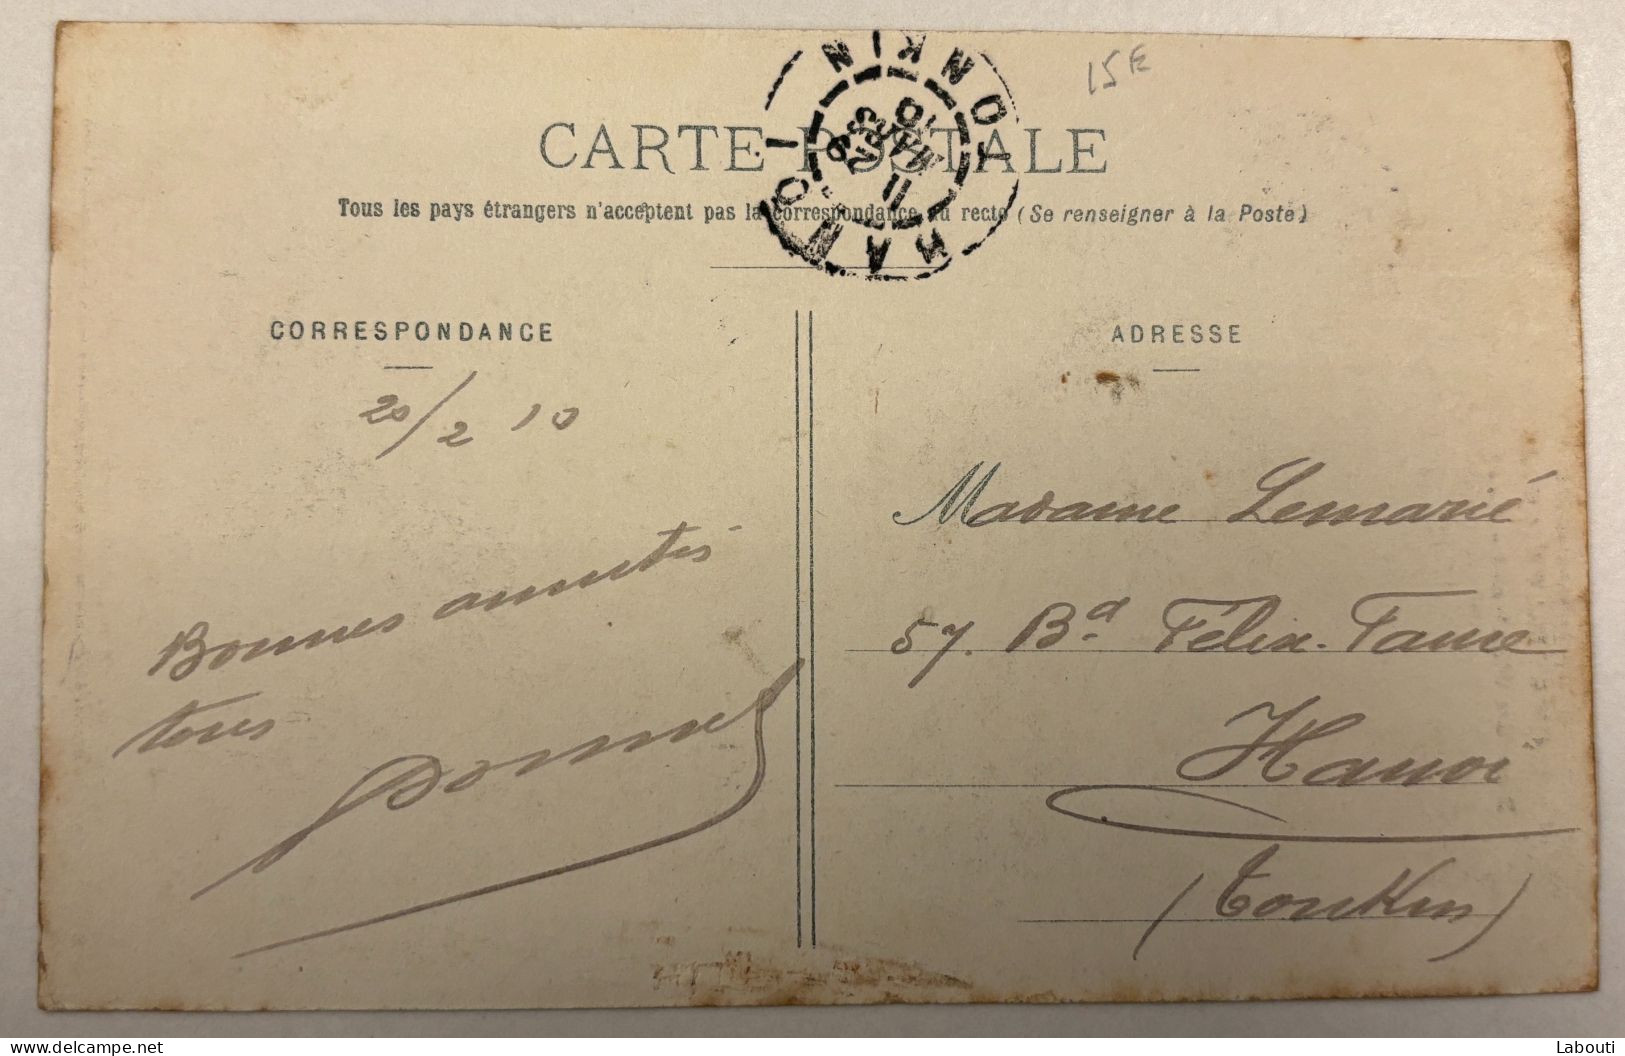 15€
HANOI TONKIN
11
MARS
10
CARTE POSTALE
Tous les pays étrangers n'acceptent pas la correspondance au recto (Se renseigner à la Poste)
CORRESPONDANCE
20/2 10
Bonnes amitiés
tous
ADRESSE
Madame Lemarié
57. Bd. Félix-Faure
Hanoi
(Tonkin)
delcampe.net
Labouti